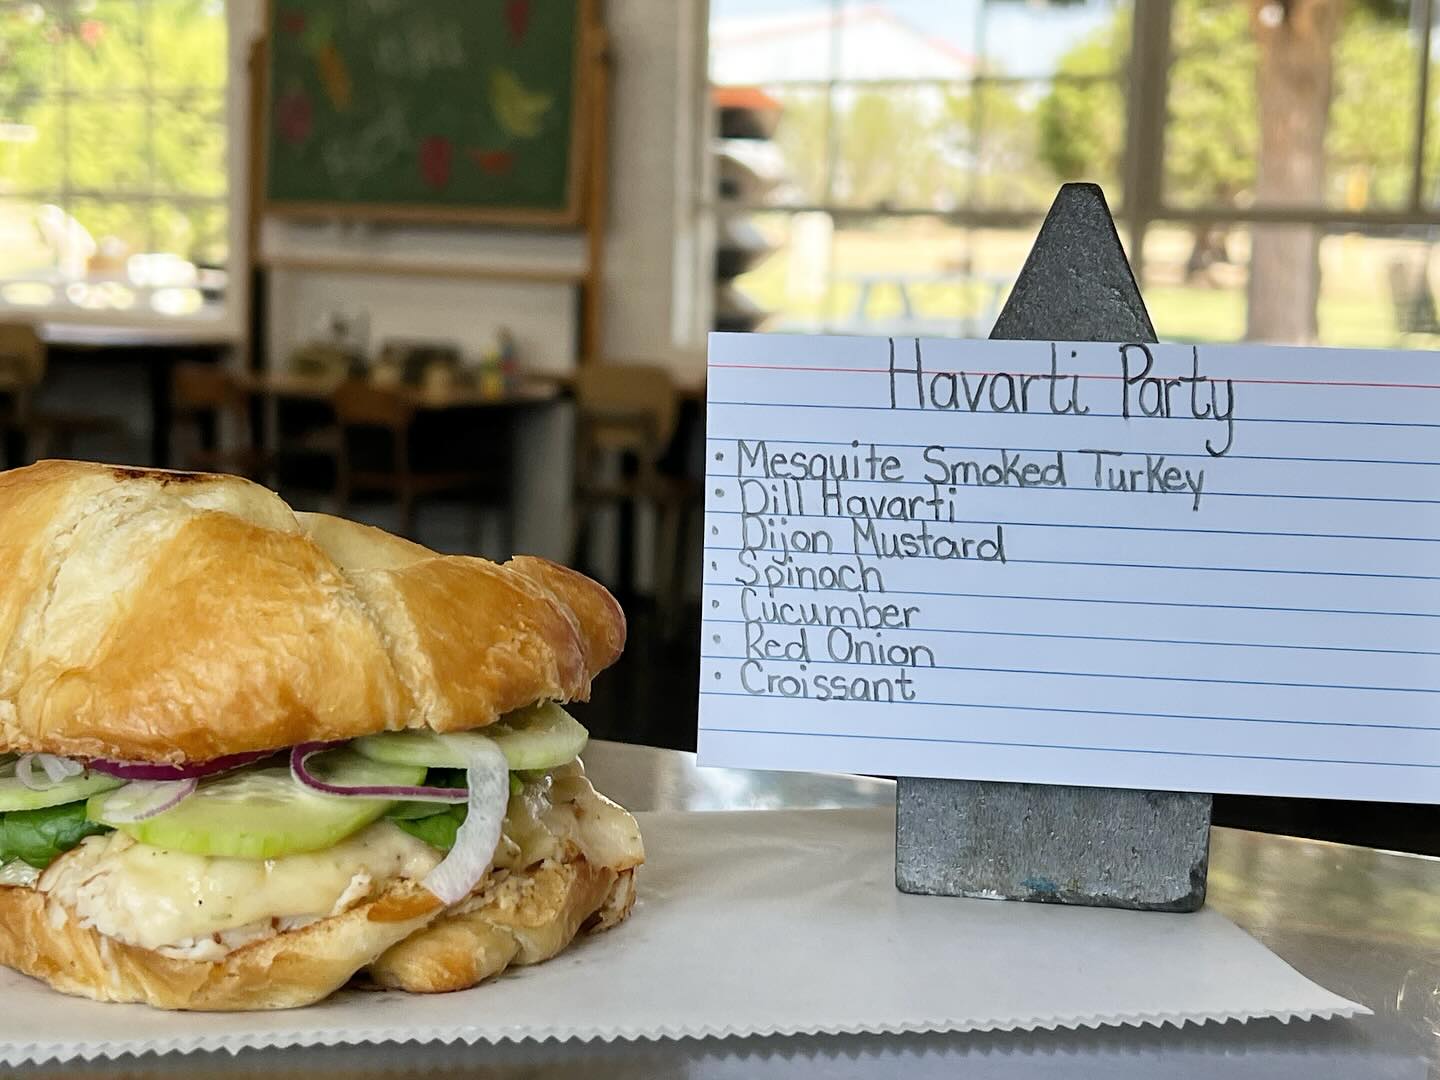 Havarti Party
• Mesquite Smoked Turkey
• Dill Havarti
• Dijon Mustard
• Spinach
• Cucumber
• Red Onion
• Croissant